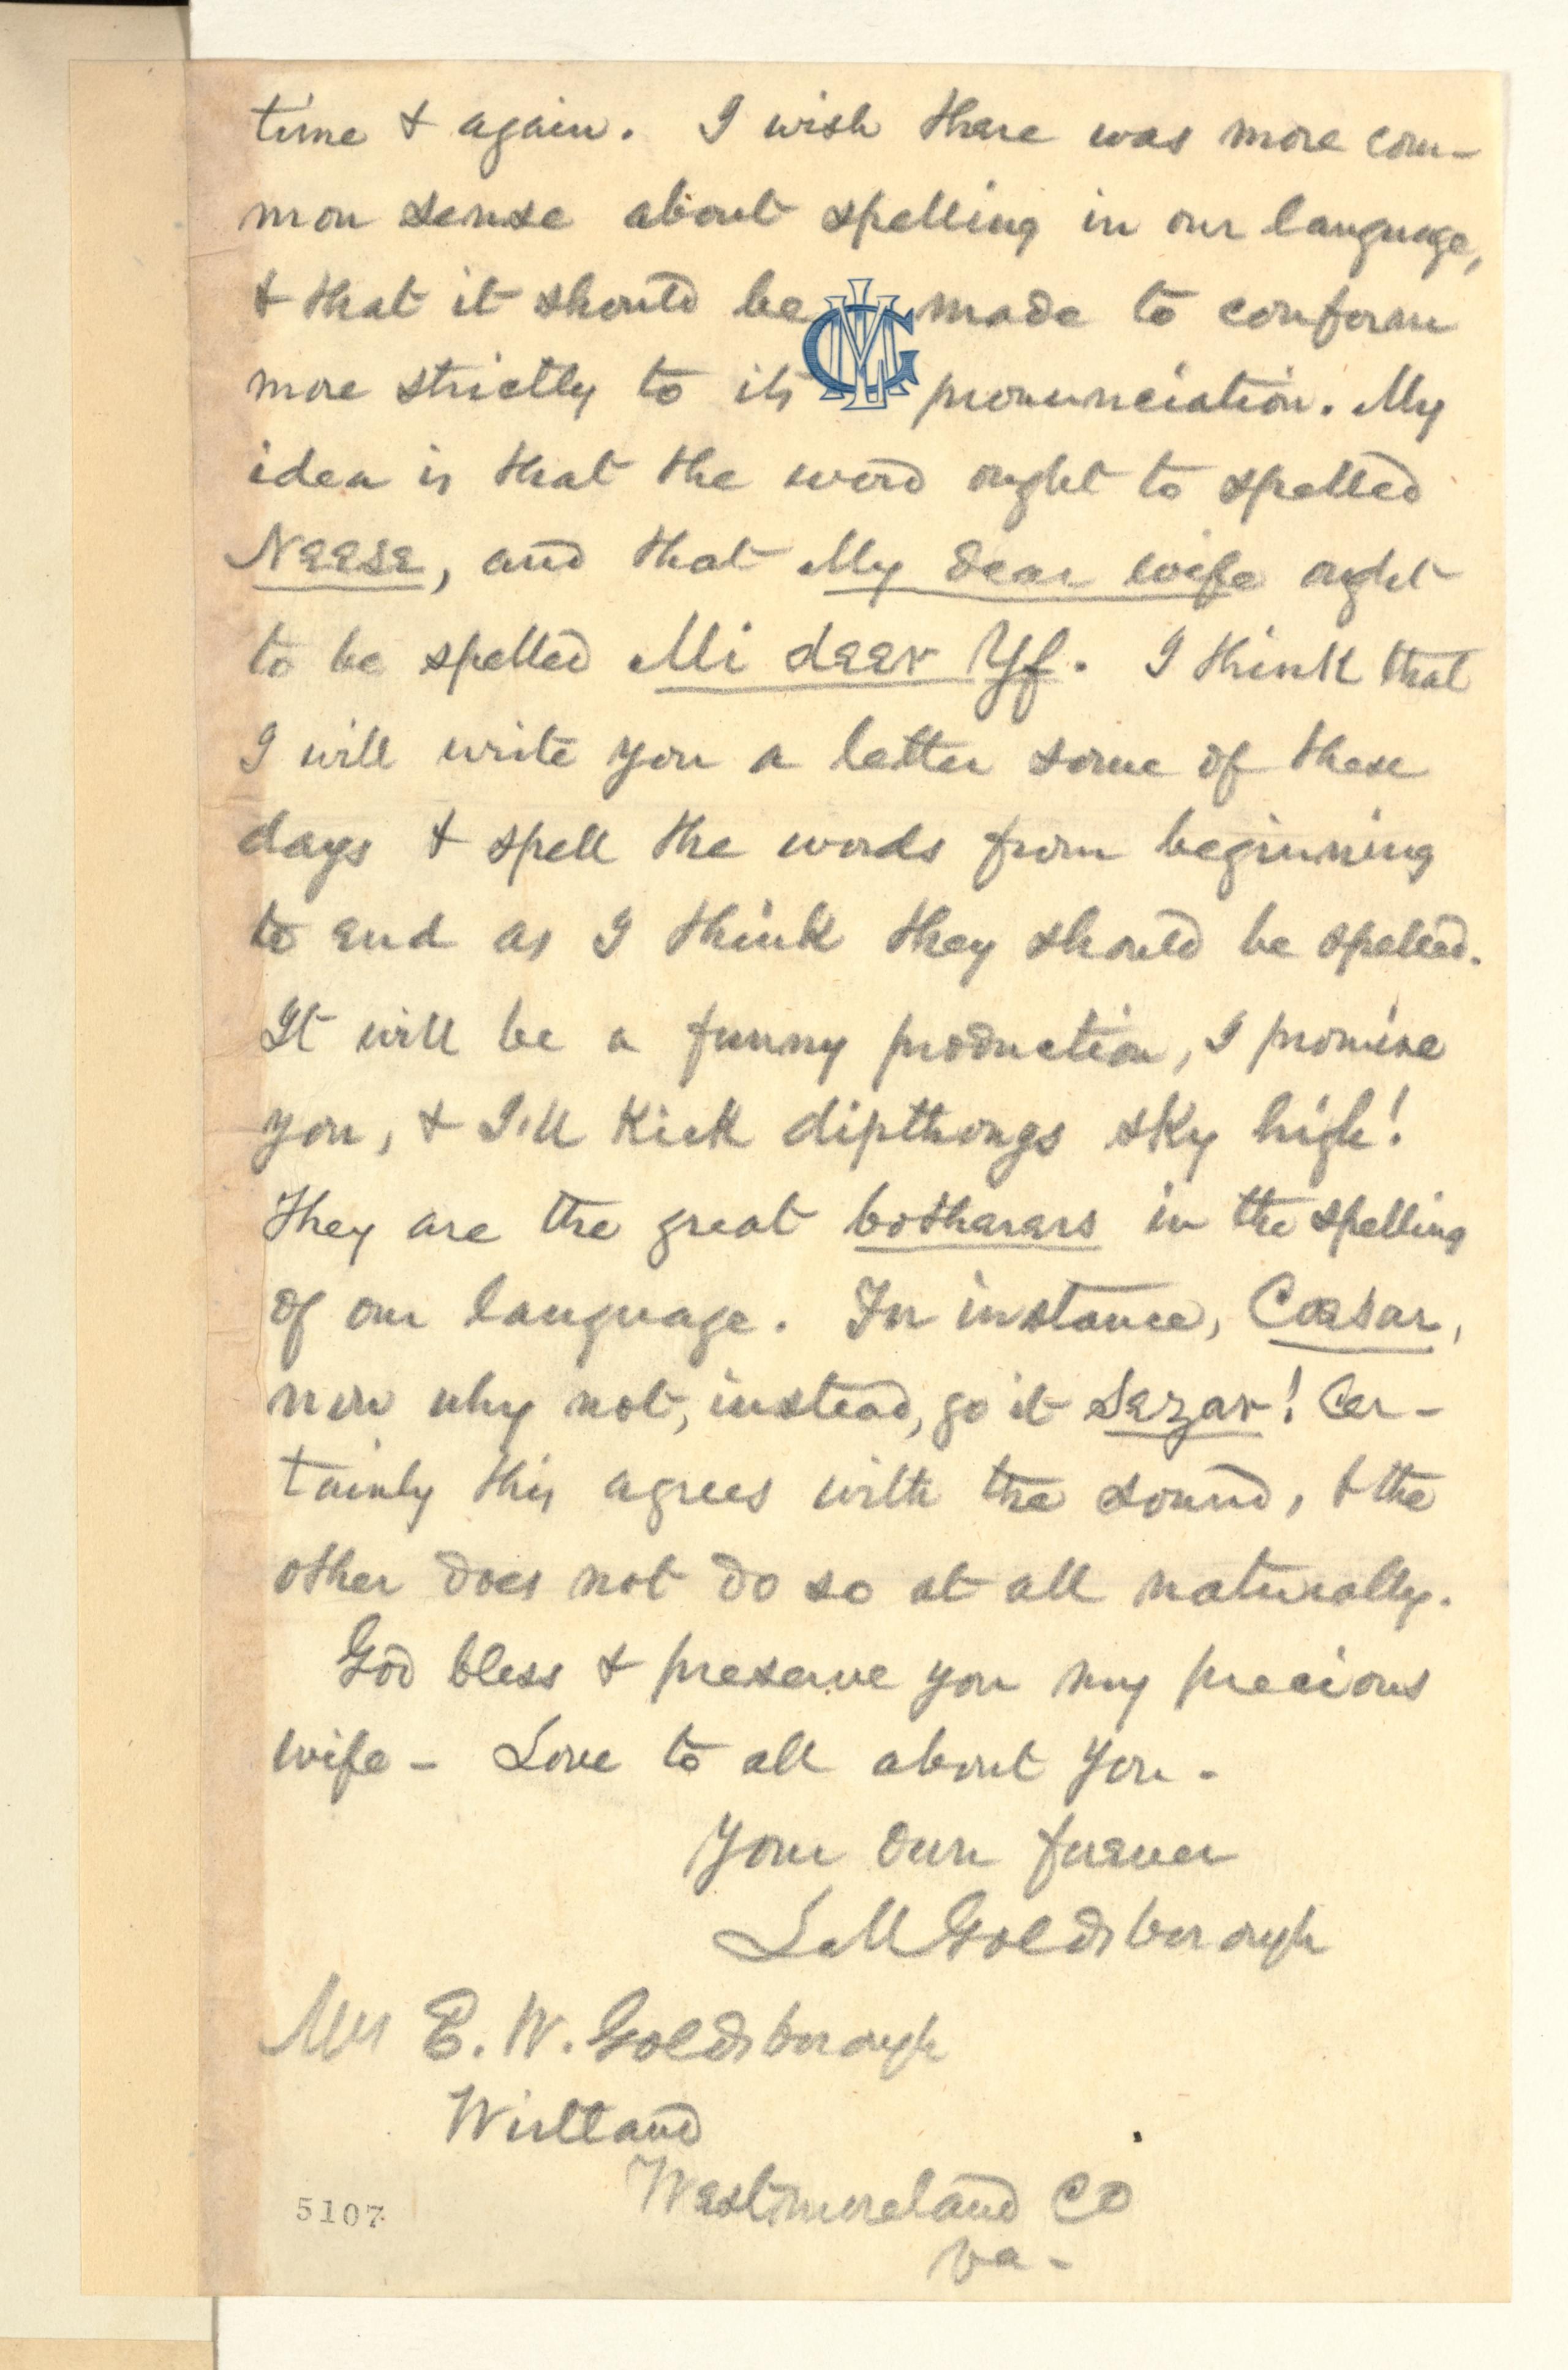 time & again. I wish there was more com-
mon sense about spelling in our language,
& that it should be made to conform
more strictly to its pronunciation. My
idea is that the word ought to spelled
Neese, and that My dear wife ought
to be spelled Mi deer Yf. I think that
I will write you a letter some of these
days & spell the words from beginning
to end as I think they should be spelled.
It will be a funny production, I promise
you, & I'll kick dipthongs sky high!
They are the great botherars in the spelling
of our language. For instance, Cæsar,
now why not, instead, go it Sezar! Cer-
tainly this agrees with the sound, & the
other does not do so at all naturally.
God bless & preserve you my precious
wife - Love to all about you -
Your own forever
L M Goldsborough
Mrs E. W. Goldsborough
Wirtland
Westmoreland Co
Va -
5107